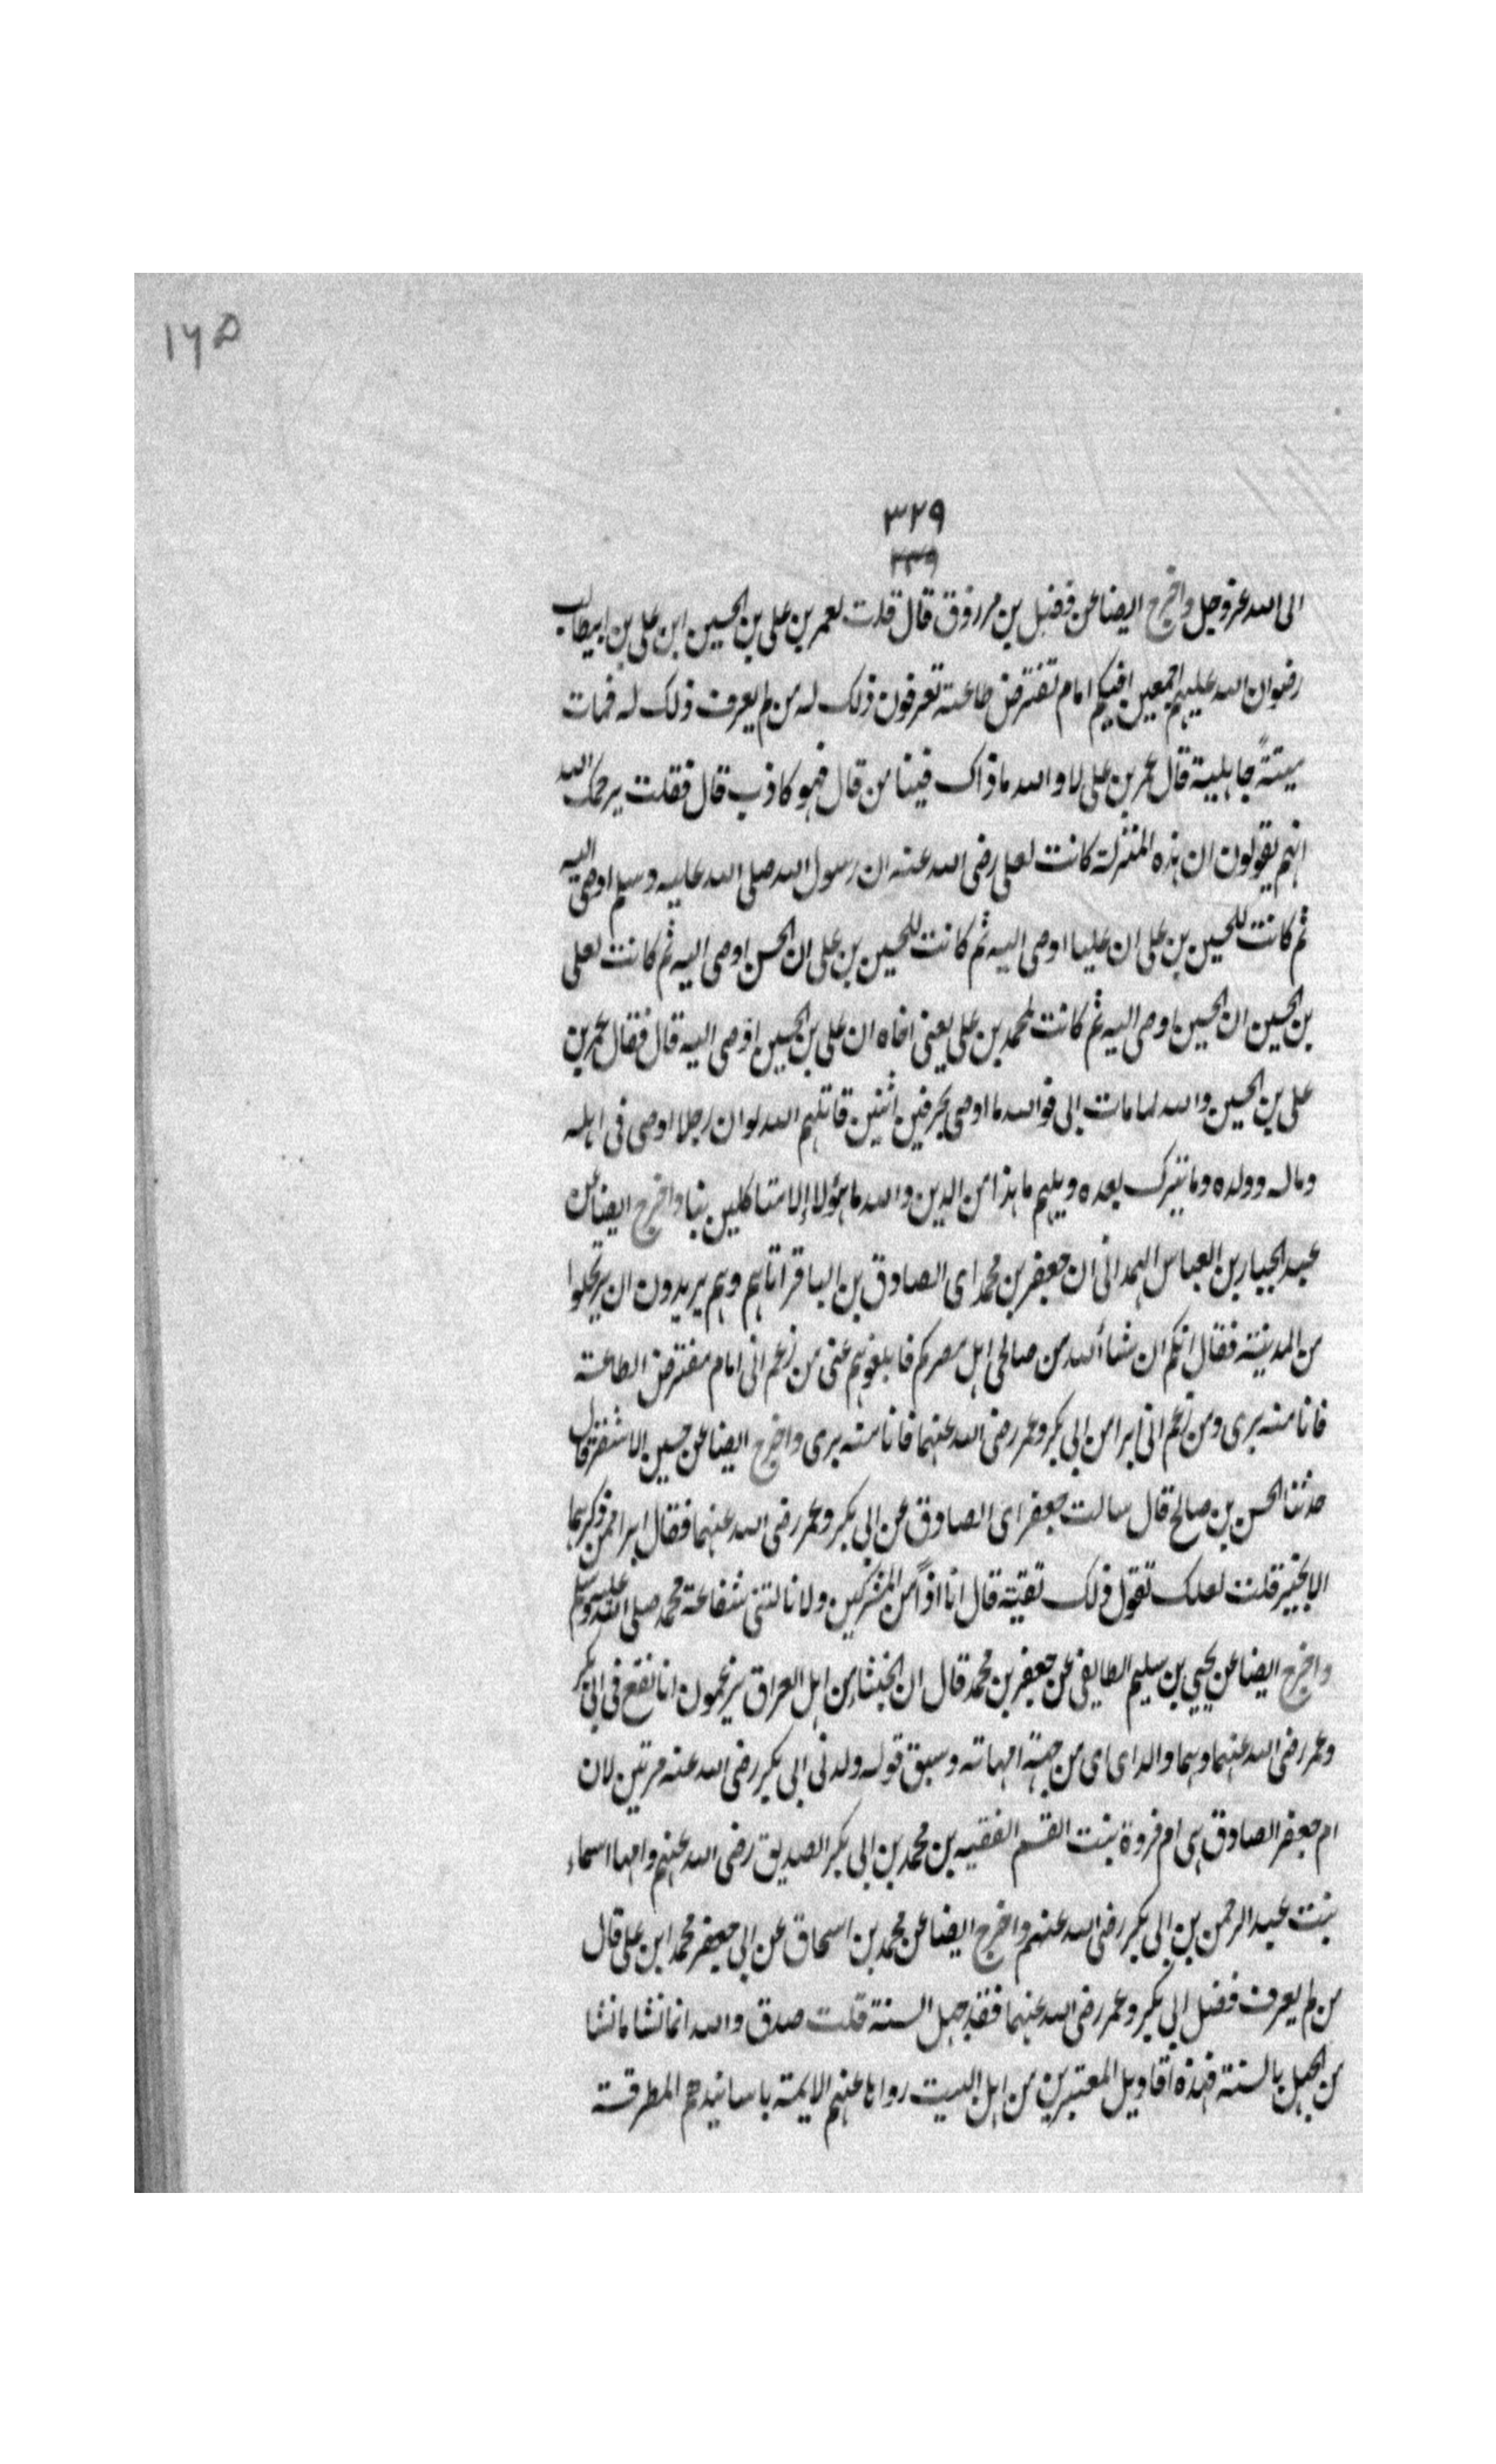 ١٦٥
٣٢٩
٣٣٩
الى الله عز وجل واخرج ايضا عن فضيل بن مرزوق قال قلت لعمر بن على بن الحسين ابن على بن ابيطالب
رضوان الله عليهم اجمعين افيكم امام تفترض طاعته تعرفون ذلك له من لم يعرف ذلك له فمات
ميتةً جاهلية قال عمر بن على لا والله ما ذاك فينا من قال فهو كاذب قال فقلت يرحمك الله
انهم يقولون ان هذه المنزلة كانت لعلى رضى الله عنه ان رسول الله صلى الله عليه وسلم اوصى اليه
ثم كانت للحسين بن على ان عليا اوصى اليه ثم كانت للحسين بن على ان الحسن اوصى اليه ثم كانت لعلى
بن الحسين ان الحسين اوصى اليه ثم كانت لمحمد بن على يعنى اخاه ان على بن الحسين اوصى اليه قال فقال عمر بن
على بن الحسين والله لما مات ابى فوالله ما اوصى بحرفين اثنين قاتلهم الله لو ان رجلا اوصى فى اهله
وماله وولده وما يترك بعده ويلهم ما هذا من الدين والله ما هؤلاء الا متاكلين بنا واخرج ايضا عن
عبد الجبار بن العباس الهمدانى ان جعفر بن محمد اى الصادق بن الباقر اتاهم وهم يريدون ان يرتحلوا
من المدينة فقال انكم ان شاء الله من صالحى اهل مصركم فابلغوهم عنى من زعم انى امام مفترض الطاعة
فانا منه برى ومن زعم انى ابرا من ابى بكر وعمر رضى الله عنهما فانا منه برى واخرج ايضا عن حسين الاشقر قال
حدثنا الحسن بن صالح قال سالت جعفر اى الصادق عن ابى بكر وعمر رضى الله عنهما فقال ابرا ممن ذكرهما
الا بخير قلت لعلك تقول ذلك تقية قال انا اذاً من المشركين ولا نالتنى شفاعة محمد صلى الله عليه وسلم
واخرج ايضا عن يحيى بن سليم الطايفى عن جعفر بن محمد قال ان الخبثاء من اهل العراق يزعمون انا نقع فى ابى بكر
وعمر رضى الله عنهما وهما والداى اى من جهة امهاته وسبق قوله ولدنى ابى بكر رضى الله عنه مرتين لان
ام جعفر الصادق هى ام فروة بنت القسم الفقيه بن محمد بن ابى بكر الصديق رضى الله عنهم وامها اسماء
بنت عبد الرحمن بن ابى بكر رضى الله عنهم واخرج ايضا عن محمد بن اسحاق عن ابى جعفر محمد ابن على قال
من لم يعرف فضل ابى بكر وعمر رضى الله عنهما فقد جهل السنة قلت صدق والله انما نشا ما نشا
من الجهل بالسنة فهذه اقاويل المعتبرين من اهل البيت رواها عنهم الايمة باسانيدهم المطرقة